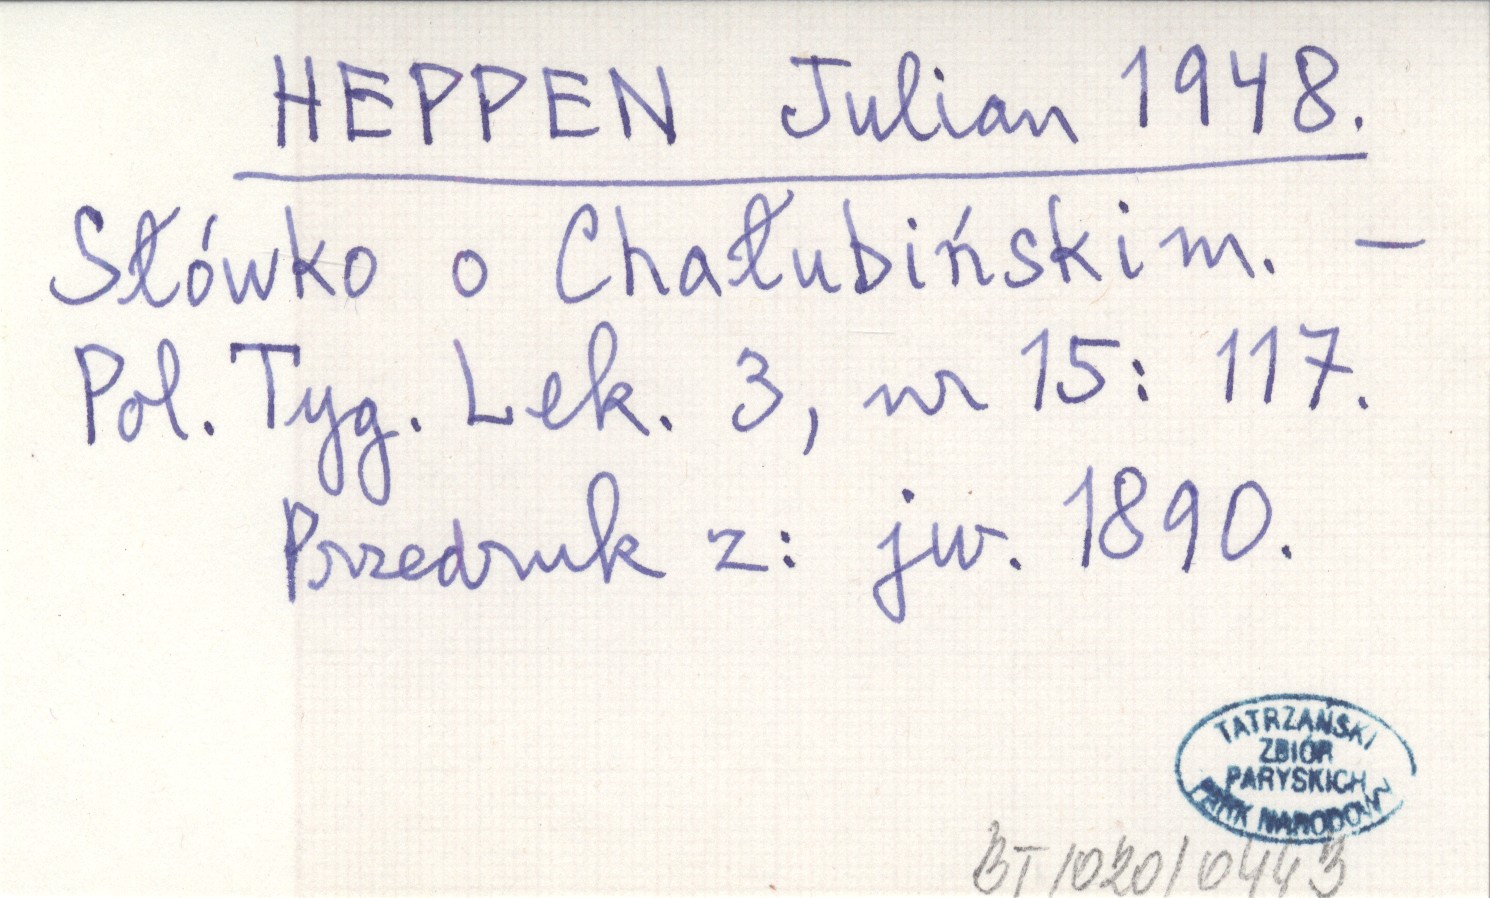 HEPPEN Julian 1948.
Słówko o Chałubińskim. —
Pol. Tyg. Lek. 3, nr 15: 117.
Przedruk z: jw. 1890.
TATRZAŃSKI
ZBIÓR
PARYSKICH
PARK NARODOWY
BT/020/0443